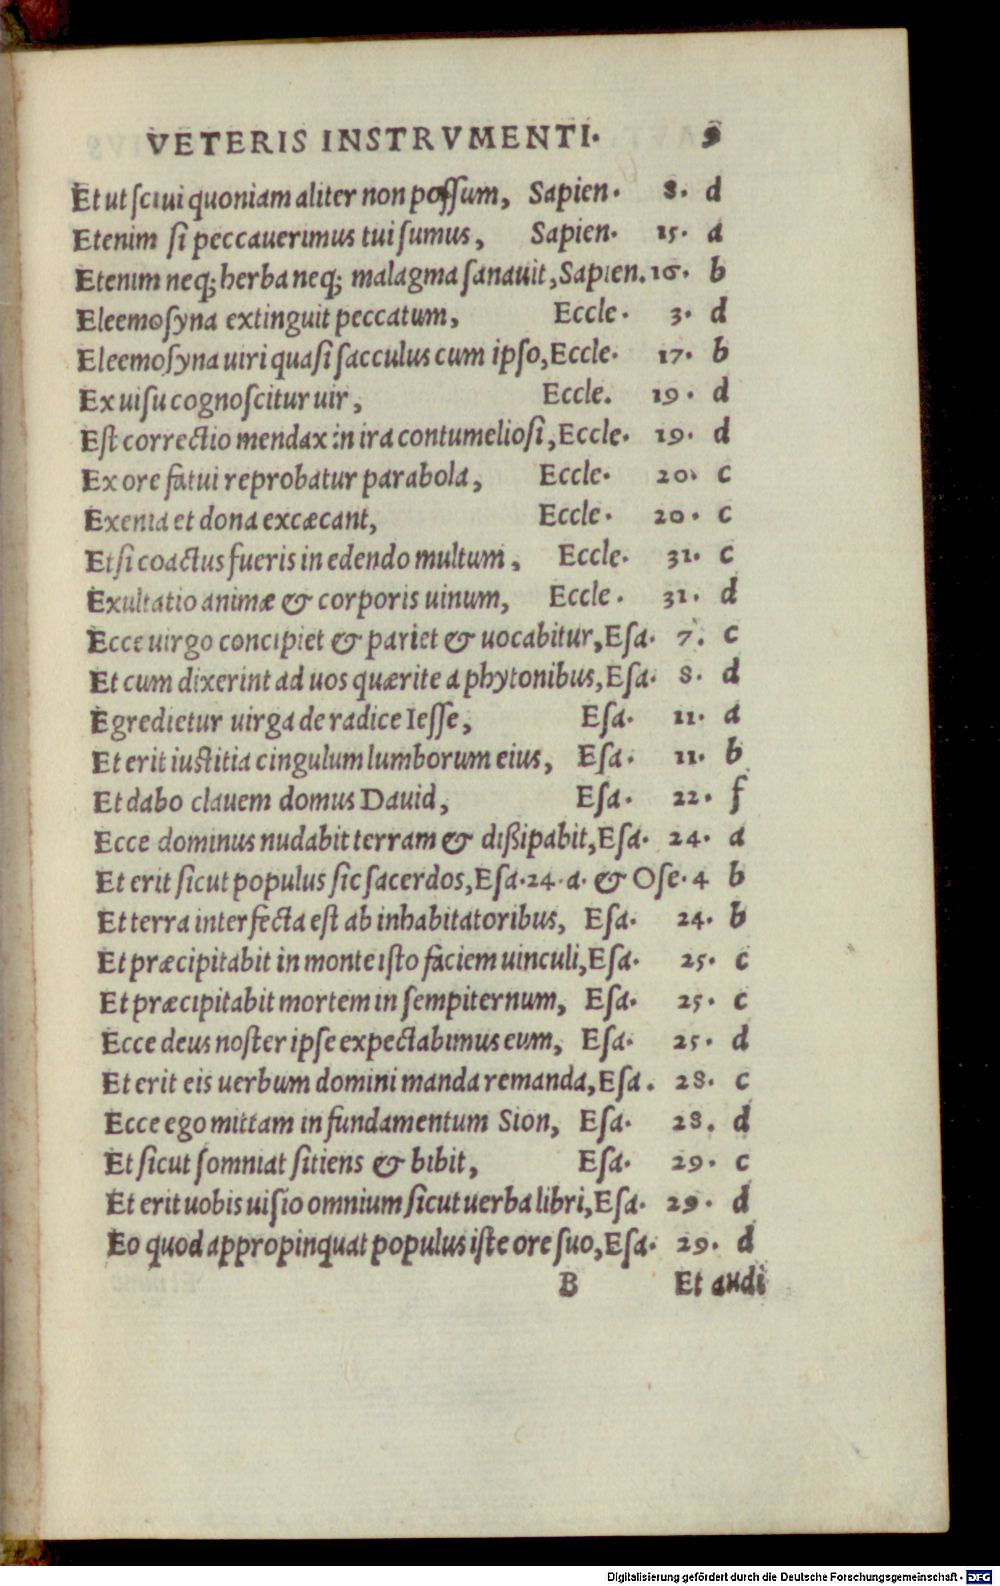 VETERIS INSTRVMENTI. 9
Et ut sciui quoniam aliter non possum, Sapien. 8. d
Etenim si peccauerimus tui sumus, Sapien. 15. a
Etenim neq; herba neq; malagma sanauit, Sapien. 16. b
Eleemosyna extinguit peccatum, Eccle. 3. d
Eleemosyna uiri quasi sacculus cum ipso, Eccle. 17. b
Ex uisu cognoscitur uir, Eccle. 19. d
Est correctio mendax in ira contumeliosi, Eccle. 19. d
Ex ore fatui reprobatur parabola, Eccle. 20. c
Exenia et dona excæcant, Eccle. 20. c
Et si coactus fueris in edendo multum, Eccle. 31. c
Exultatio animæ & corporis uinum, Eccle. 31. d
Ecce uirgo concipiet & pariet & uocabitur, Esa. 7. c
Et cum dixerint ad uos quærite a phytonibus, Esa. 8. d
Egredietur uirga de radice Iesse, Esa. 11. a
Et erit iustitia cingulum lumborum eius, Esa. 11. b
Et dabo clauem domus Dauid, Esa. 22. f
Ecce dominus nudabit terram & dißipabit, Esa. 24. a
Et erit sicut populus sic sacerdos, Esa. 24. a. & Ose. 4 b
Et terra interfecta est ab inhabitatoribus, Esa. 24. b
Et præcipitabit in monte isto faciem uinculi, Esa. 25. c
Et præcipitabit mortem in sempiternum, Esa. 25. c
Ecce deus noster ipse expectabimus eum, Esa. 25. d
Et erit eis uerbum domini manda remanda, Esa. 28. c
Ecce ego mittam in fundamentum Sion, Esa. 28. d
Et sicut somniat sitiens & bibit, Esa. 29. c
Et erit uobis uisio omnium sicut uerba libri, Esa. 29. d
Eo quod appropinquat populus iste ore suo, Esa. 29. d
B Et audi
Digitalisierung gefördert durch die Deutsche Forschungsgemeinschaft - DFG